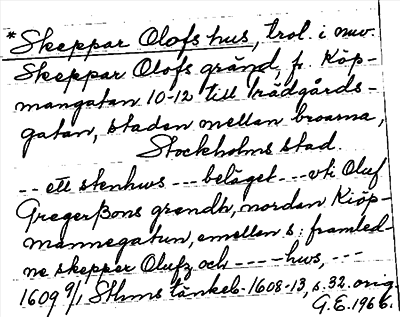 *Skeppar Olofs hus, trol. i nuv.
Skeppar Olofs gränd, fr. Köp-
mangatan 10-12 till Trädgårds-
gatan, staden mellan broarna,
Stockholms stad.
-- ett stenhws --- beläget --- vti Oluf
Gregerßons grendh, nordan Kiöp-
mannegatun, emellan s: framled-
ne skepper Olufz och ---- hws, ---
1609 9/1 Sthms tänkeb. 1608-13, s. 32. orig.
G.E. 1966.